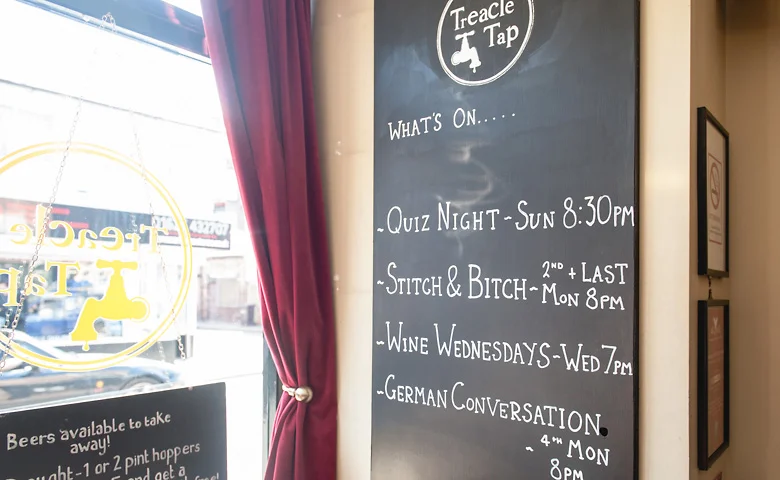 Treacle
Tap
WHAT'S ON.....
~QUIZ NIGHT~SUN 8:30PM
~STITCH & BITCH~ 2ND + LAST
MON 8PM
~WINE WEDNESDAYS~WED 7PM
~GERMAN CONVERSATION
~ 4TH MON
8PM
Treacle
Tap
432707
Beers available to take
away!
-1 or 2 pint hoppers
and get a